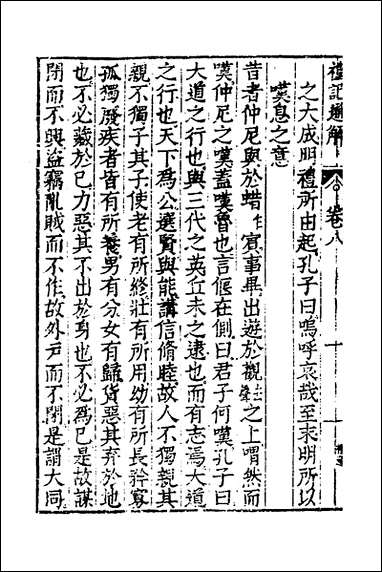 禮記通解
卷八
十
之大成明禮所由起孔子曰嗚呼哀哉至末明所以
嘆息之意
昔者仲尼與於蜡乍賓事畢出遊於觀去聲之上喟然而
嘆仲尼之嘆蓋嘆魯也言偃在側曰君子何嘆孔子曰
大道之行也與三代之英丘未之逮也而有志焉大道
之行也天下爲公選賢與能講信脩睦故人不獨親其
親不獨子其子使老有所終壯有所用幼有所長矜寡
孤獨廢疾者皆有所養男有分女有歸貨惡其弃於地
也不必藏於己力惡其不出於身也不必爲己是故謀
閉而不興盜竊亂賊而不作故外戸而不閉是謂大同